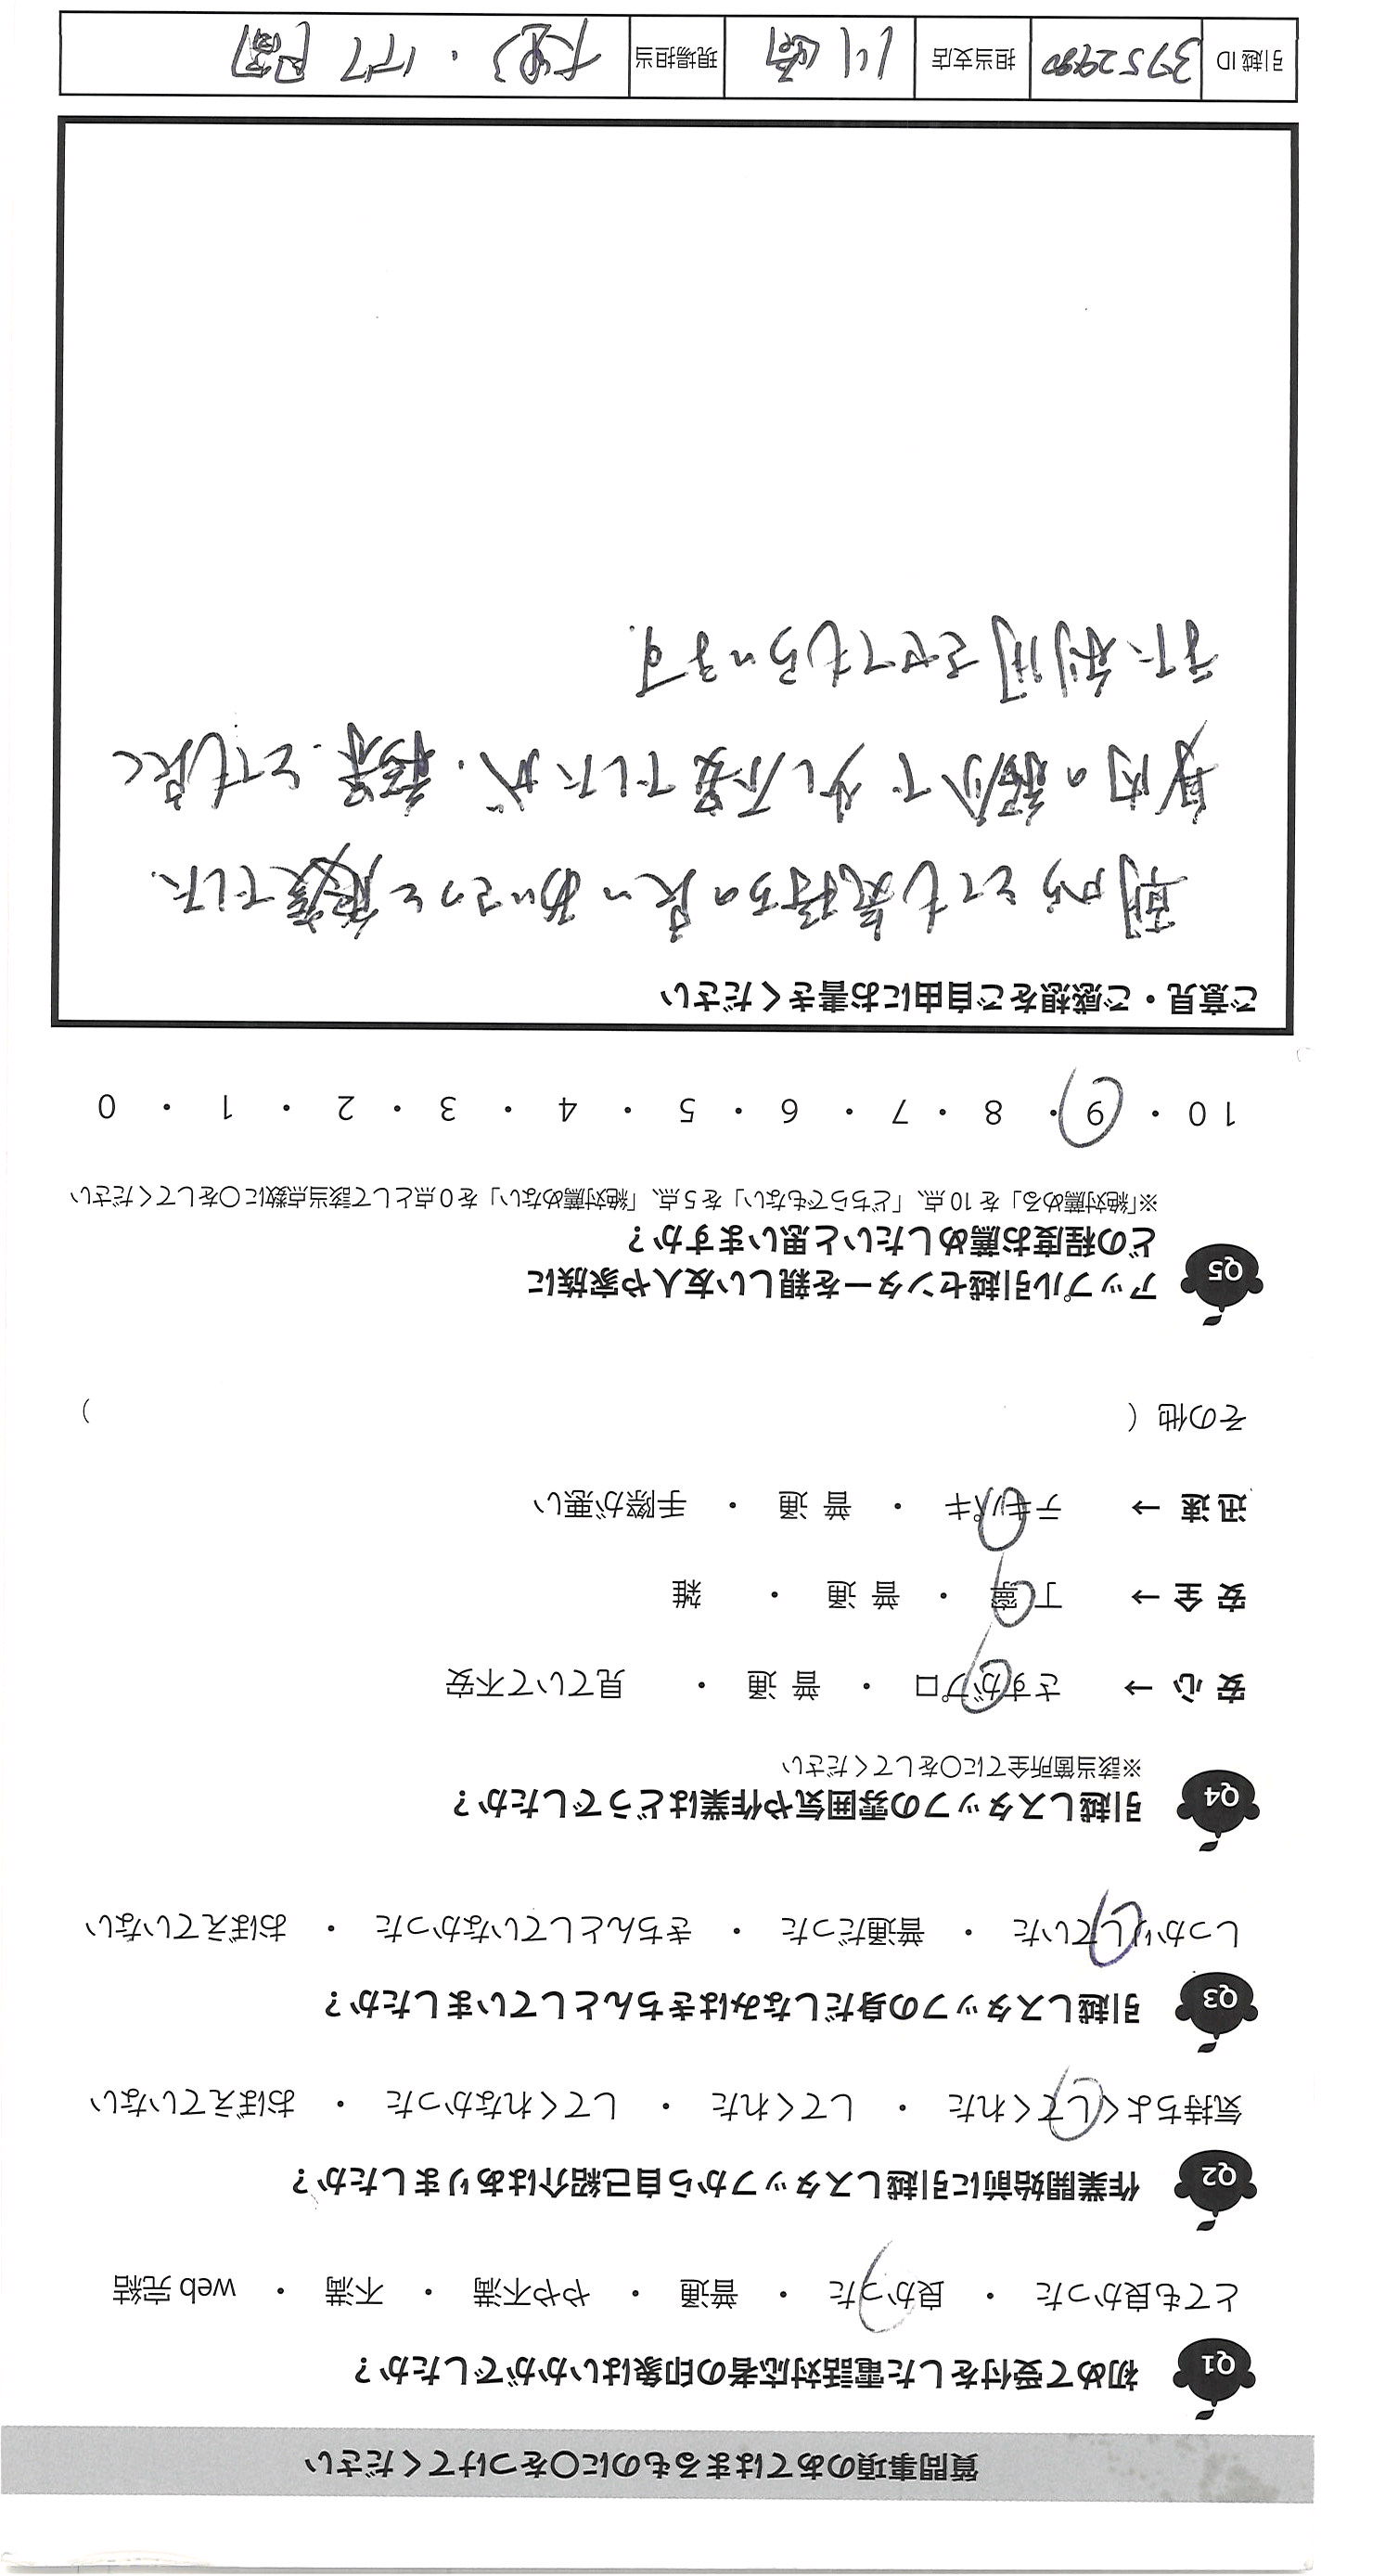 質問事項のあてはまるものに○をつけてください
Q1 初めて受付をした電話対応者の印象はいかがでしたか？
とても良かった ・ 良かった ・ 普通 ・ やや不満 ・ 不満 ・ web 完結
Q2 作業開始前に引越しスタッフから自己紹介はありましたか？
気持ちよくしてくれた ・ してくれた ・ してくれなかった ・ おぼえていない
Q3 引越しスタッフの身だしなみはきちんとしていましたか？
しっかりしていた ・ 普通だった ・ きちんとしていなかった ・ おぼえていない
Q4 引越しスタッフの雰囲気や作業はどうでしたか？
※該当箇所全てに○をしてください
安 心 → さすがプロ ・ 普 通 ・ 見ていて不安
安 全 → 丁 寧 ・ 普 通 ・ 雑
迅 速 → テキパキ ・ 普 通 ・ 手際が悪い
その他（ ）
Q5 アップル引越センターを親しい友人や家族に
どの程度お薦めしたいと思いますか？
※「絶対薦める」を 10 点、「どちらでもない」を 5 点、「絶対薦めない」を 0 点として該当点数に○をしてください
10 ・ 9 ・ 8 ・ 7 ・ 6 ・ 5 ・ 4 ・ 3 ・ 2 ・ 1 ・ 0
ご意見・ご感想をご自由にお書きください
朝からとても気持ちの良いあいさつと態度でした。
身内の紹介で少し不安でしたが、結果、とても良く
また利用させてもらいます。
引越 ID 3752980 担当支店 川崎 現場担当